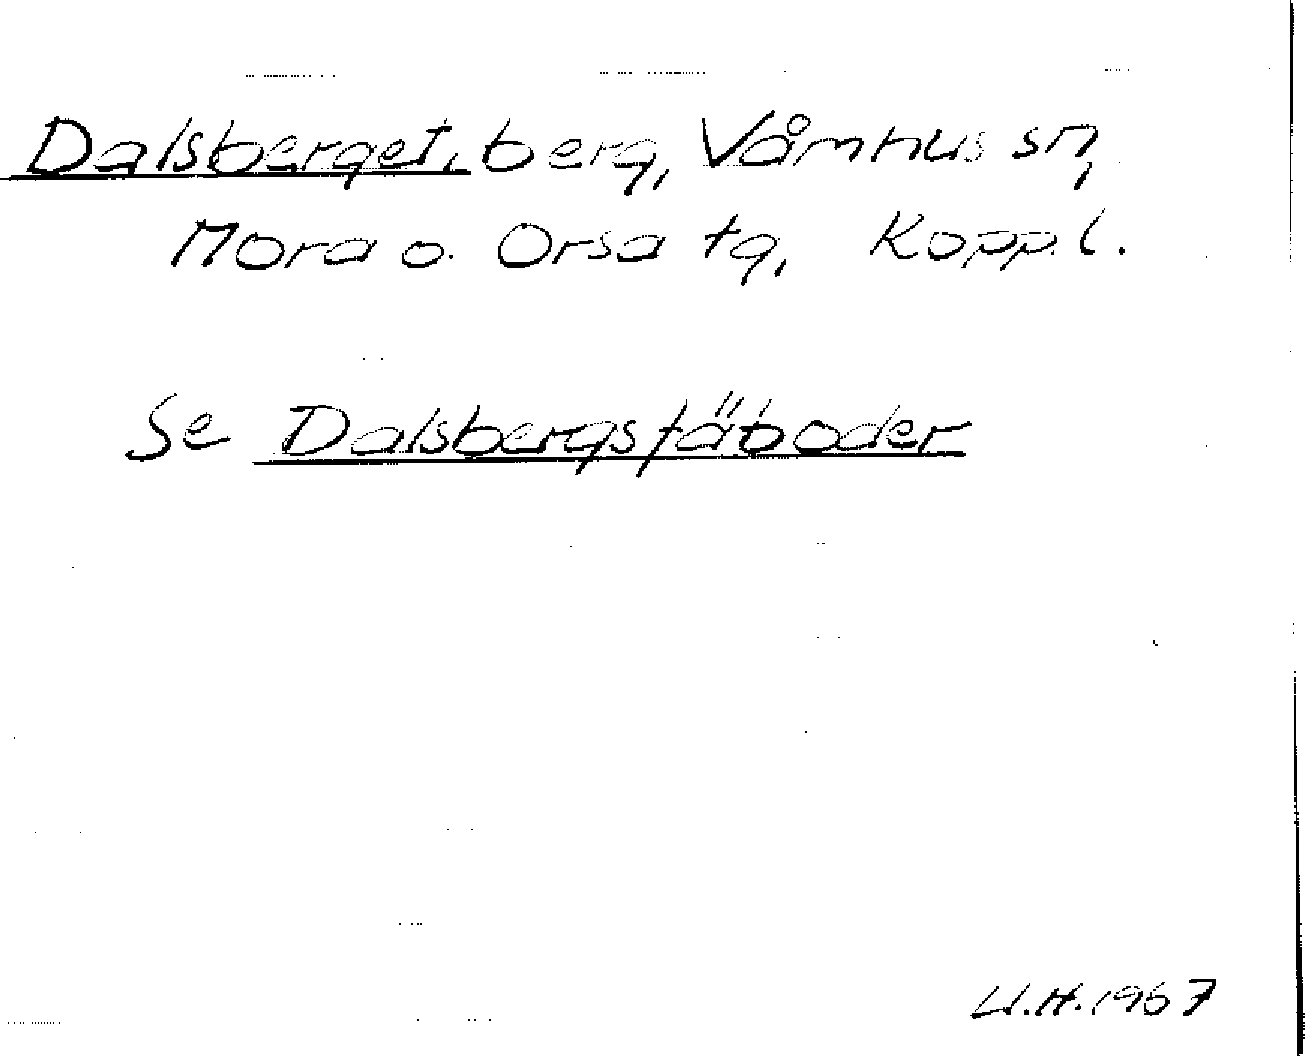 Dalsberget, berg, Våmhus sn,
Mora o. Orsa tg, Kopp.l.
Se Dalsbergsfäboder
U.H. 1967